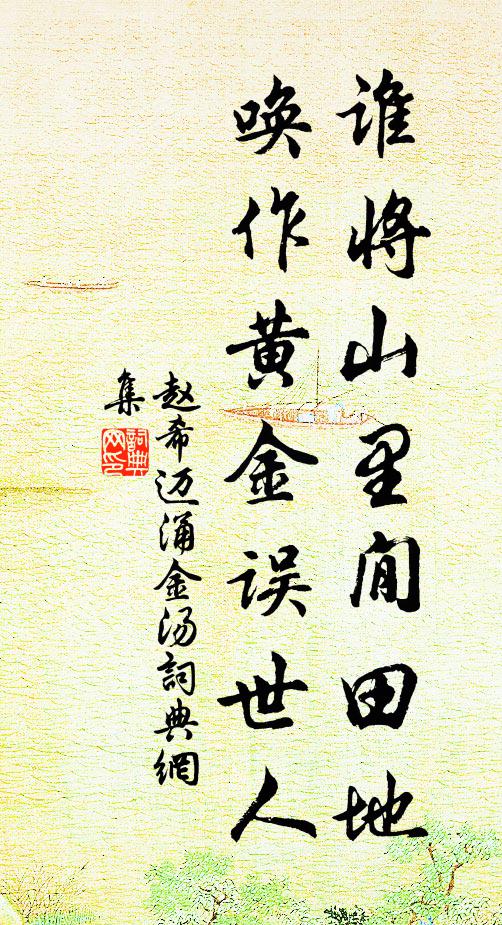 谁将山里闲田地
唤作黄金误世人
赵希迈涌金汤詞典網
集
詞典